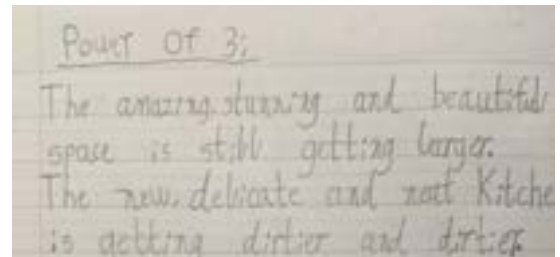 Power Of 3:
The amazing, stunning and beautiful
space is still getting larger.
The new, delicate and neat Kitche
is getting dirtier and dirtier.